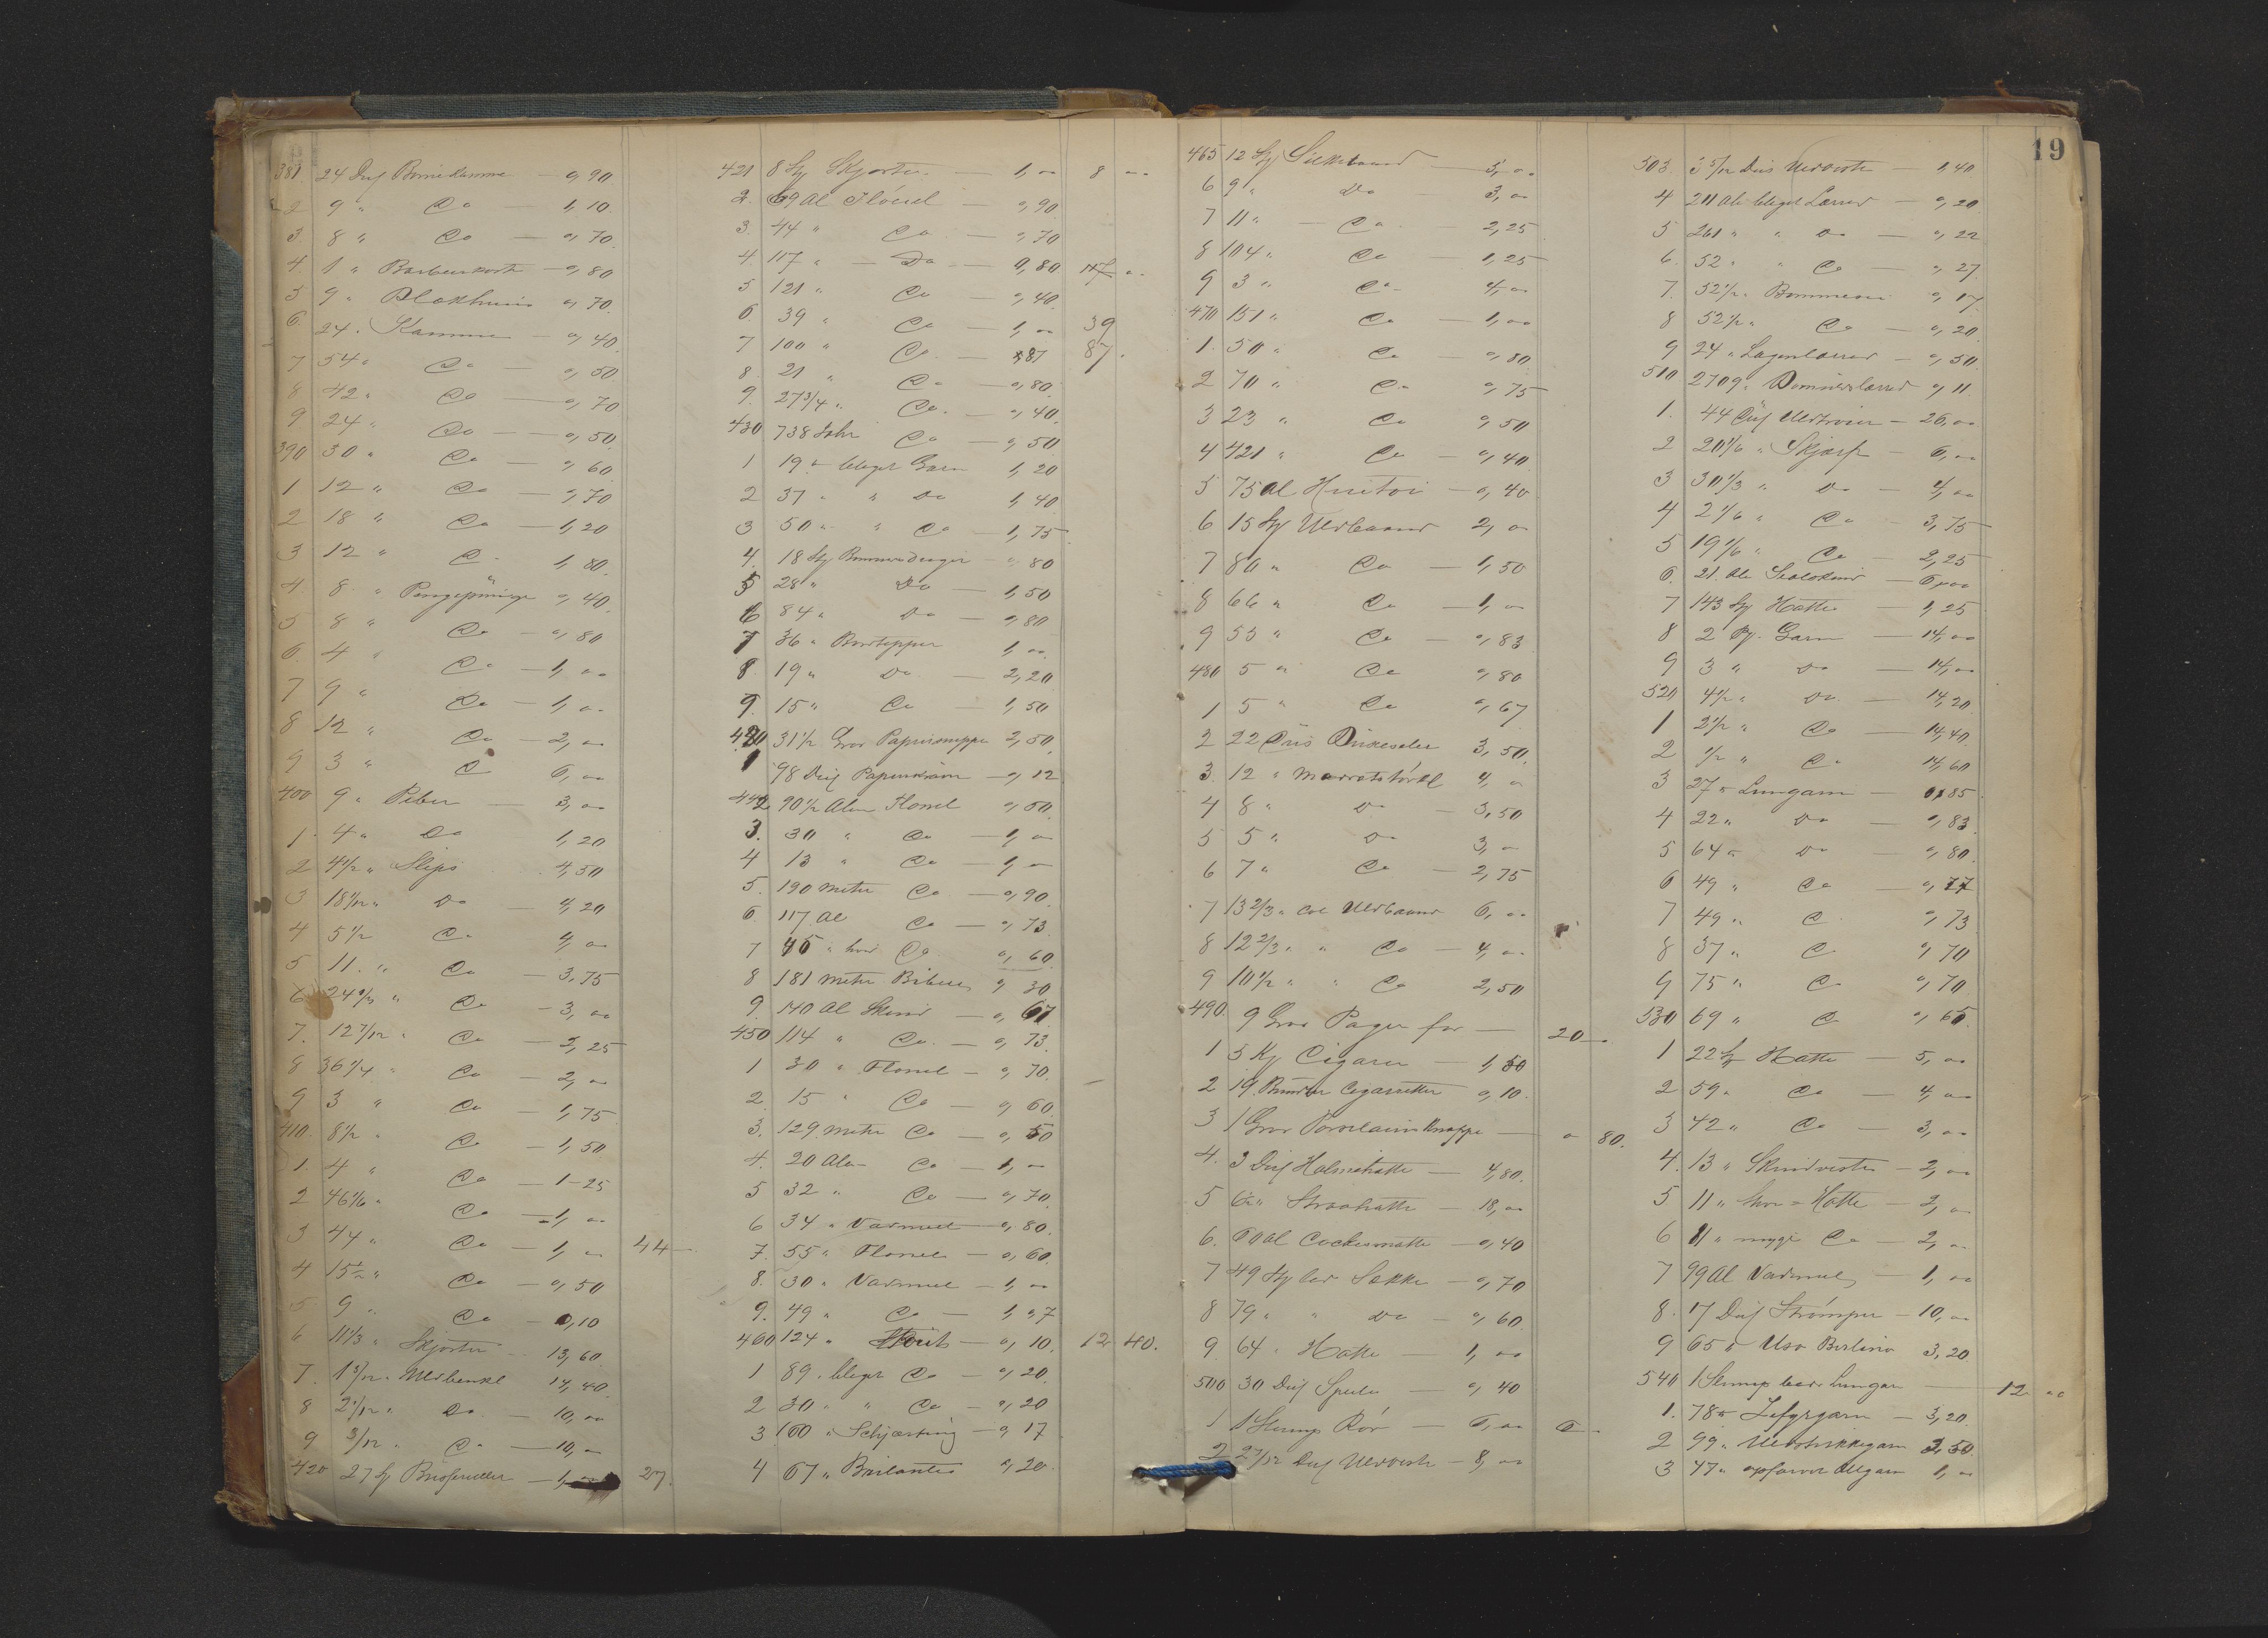 19
381 24 Dus Börnekamme — 0,90
2 9 " Do — 1,10
3 8 " Do — 0,70
4 1 " Barberkoste — 0,80
5 9 " 0,70
6 24 " Kamme — 0,40
7 54 " Do — 0,50
8 42 " Do — 0,70
9 24 " Do — 0,50
390 30 " Do — 0,60
1 12 " Do — 0,70
2 18 " Do — 1,20
3 12 " Do 1,80
4 8 " 0,40
5 8 " Do — 0,80
6 4 " Do — 1,00
7 9 " Do — 1,00
8 12 " Do — 2,00
9 3 " Do 6,00
400 9 " Piber — 3,00
1 4 " Do 1,20
2 4 1/2 " Slips 4,50
3 18 1/12 " Do — 4,20
4 5 1/2 Do — 4,00
5 11 " Do — 3,75
6 Do — 3,00
7 12 7/12 " Do — 2,25
8 36 1/4 " Do — 2,00
9 3 " Do — 1,75
410 8 1/2 " Do — 1,50
1 4 " Do — 1-25
2 46 1/6 " Do — 1,00
3 44 " Do — 1,00 44 —
4 15 1/2 " Do — 0,50
5 9 " Do — 0,10
6 11 1/3 " Skjorter 13,60
7 1 5/12 " Uldbenkl 14,40
8 2 1/12 " Do — 10,00
9 3/12 " Do — 10,00
420 27 St — 1,00 27.
421 8 St Skjorter — 1,00 8 00
2 69 Al Flonel — 0,90
3 44 " Do — 0,70
4 117 " Do — 0,80
5 121 " Do — 0,40
6 39 " Do — 1,00 39
7 100 " Do — 87 87.
8 21 " Do — 0,80
9 27 3/4 " Do — 0,40
430 738 Do — 0,50
1 19 " bleget Garn 1,20
2 37 " " Do 1,40
3 50 " " Do — 1,75
4 18 St 0,80
5 28 " Do — 1,50
6 84 " Do — 0,80
7 36 " Bordtepper 1,00
8 19 " Do — 2,20
9 15 " Do — 1,50
440 31 1/2 Gros 2,50
1 98 Dus — 0,12
442 90 1/2 Alen Flonel 0,50
3 30 " Do — 1,00
4 13 " Do — 1,00
5 190 Meter Do — 0,90
6 117 Al Do — 0,73
7 45 " hvid Do 0,60
8 181 Meter 0,30
9 140 Al — 0,67
450 114 " Do — 0,73
1 30 " Flonel — 0,70
2 15 " Do — 0,60
3 129 Meter Do — 0,50
4 20 Alen Do — 1,00
5 32 " Do — 0,70
6 34 " Vadmel — 0,80
7 55 " Flonel — 0,60
8 30 " Vadmel — 1,00
9 49 " Do — 1,07
460 124 " — 0,10 12 40.
1 89 " bleget Do — 0,20
2 30 " " Do — 0,20
3 160 " Schjærting — 0,17
4 67 " Brilantin 0,20
465 12 St Silkebaand — 5,00
6 9 " Do — 3,00
7 11 " — Do — 2,25
8 104 " Do — 1,25
9 3 " Do — 4,00
470 151 " Do — 1,00
1 50 " Do — 0,80
2 70 " Do 0,75
3 23 " Do 0,50
4 421 " Do — 0,40
5 75 Al Huitoi — 0,40
6 15 St Uldbaand 2,00
7 80 " Do — 1,50
8 66 " Do — 1,00
9 53 " Do — 0,83
480 5 " Do 0,80
1 5 " Do 0,67
2 22 Dus 3,50
3 12 " 4,00
4 8 " Do — 3,50
5 5 " Do 3,00
6 7 " Do — 2,75
7 13 2/3 " Col Uldbaand 6,00
8 12 2/3 " " Do — 4,00
9 10 1/2 " " Do 2,50
490 9 Gros for — 20 —
1 5 Ks Cigarer — 1,50
2 19 Bundter Cigaretter 0,10
3 1 Gros Porcelains Knappe — 0 80.
4 3 Dus Halmehatte — 4,80
5 6 1/2 " Straahatte — 18,00
6 60 Al Cockusmatte — 0,40
7 49 St Sække — 0,70
8 79 " " Do 0,60
9 64 " Hatte — 1,00
500 30 Dus — 0,40
1 1 Slump Rör — 6,00 6 —
2 2 7/12 Dus Uldveste — 8,00
503 3 5/12 Dus Uldveste — 1,40
4 211 Al bleget Lærred — 0,20
5 261 " " Do — 0,22
6 52 " " Do — 0,27
7 52 1/2 " 0,17
8 52 1/2 " Do — 0,20
9 24 " Lagenlærred — 0,50
510 2709 " Domineslærred 0,11
1 44 Dus Uldtroier — 26,00
2 20 1/6 " Skjærf — 6,00
3 30 1/3 " Do — 4,00
4 2 1/6 " Do — 3,75
5 19 1/6 " Do — 2,25
6 21 Al — 6,00
7 143 St Hatte — 1,25
8 2 Pj. Garn — 14,00
9 3 " Do — 14,00
520 4 1/2 " Do — 14,20
1 2 1/2 " Do — 14,40
2 1/2 " Do 14,60
3 27 " Lungarn — 0,85
4 22 " Do — 0,83
5 64 " Do — 0,80
6 49 " Do — 0,77
7 49 " Do 0,73
8 37 " Do 0,70
9 75 " Do 0,70
530 69 " Do 0,65
1 22 St Hatte — 5,00
2 59 " Do — 4,00
3 42 " Do — 3,00
4 13 " Skindveste — 2,00
5 11 " Hatte — 2,00
6 11 " Do — 2,00
7 99 Al Vadmel — 1,00
8 17 Dus Strömper — 10,00
9 65 " Berliner 3,20
540 1 Slump Lungarn — 12 00
1 78 " Zefyrgarn — 3,20
2 99 " Uldstrikkegarn 2,50
3 47 " opfarvet Uldgarn 1,00